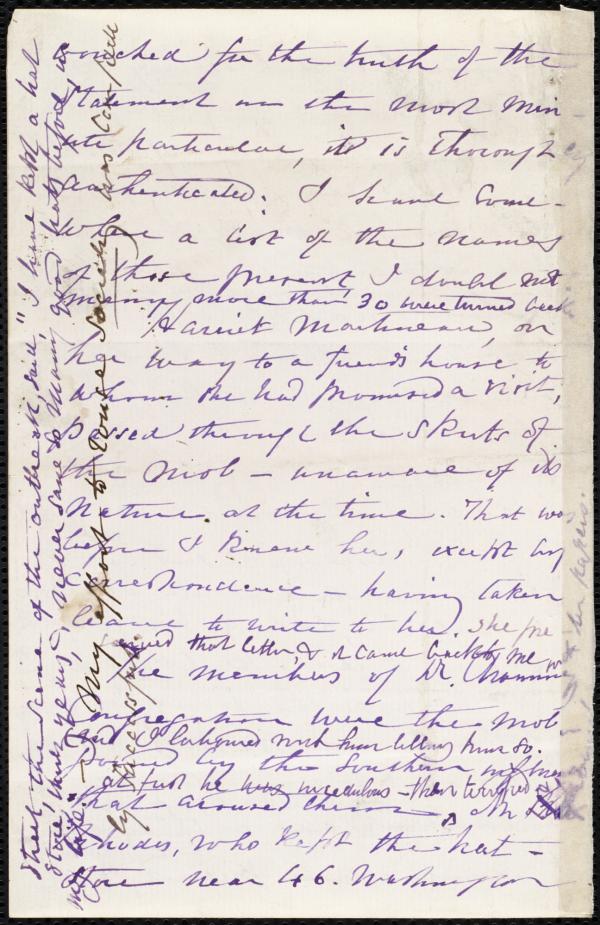 vouched for the truth of the
statement in the most min
ute particular, it is thorough
authenticated. I have some-
where a list of the names
of those present I doubt not
many more than 30 were turned back
Harriet Martineau, on
her way to a friend's house to
whom she had promised a visit,
passed through the skirts of
the mob - unaware of its
nature at the time. That was
before I knew her, except by
correspondence - having taken
leave to write to her. She pre
served that letter, & it came back to me
The members of Dr. Channing
congregation were the mob
and I laboured with him telling him so.
by the Southern
at first he was incredulous - then terrified
that aroused them
Rhodes, who kept the hat-
store near 46. Washington
street the scene of the outbreak, said, "I have kept a hat
store, years, & never saw so many good hats before, in
my life."
My effort to rouse society was completely
successful.
& her papers.